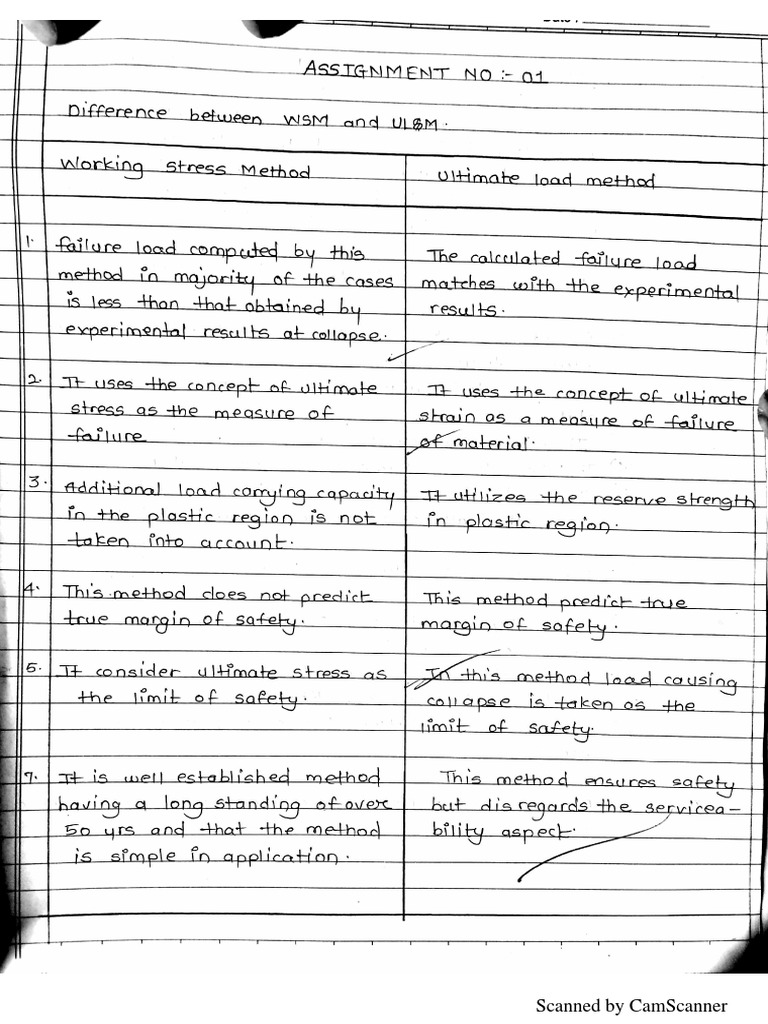 ASSIGNMENT NO :- 01
Difference between WSM and ULM.
Working Stress Method
Ultimate load method
1. failure load computed by this
method in majority of the cases
is less than that obtained by
experimental results at collapse.
The calculated failure load
matches with the experimental
results.
2. It uses the concept of ultimate
stress as the measure of
failure
It uses the concept of ultimate
strain as a measure of failure
of material.
3. Additional load carrying capacity
in the plastic region is not
taken into account.
It utilizes the reserve strength
in plastic region.
4. This method does not predict
true margin of safety.
This method predict true
margin of safety.
5. It consider ultimate stress as
the limit of safety.
In this method load causing
collapse is taken as the
limit of safety.
7. It is well established method
having a long standing of over
50 yrs and that the method
is simple in application.
This method ensures safety
but disregards the servicea-
bility aspect.
Scanned by CamScanner